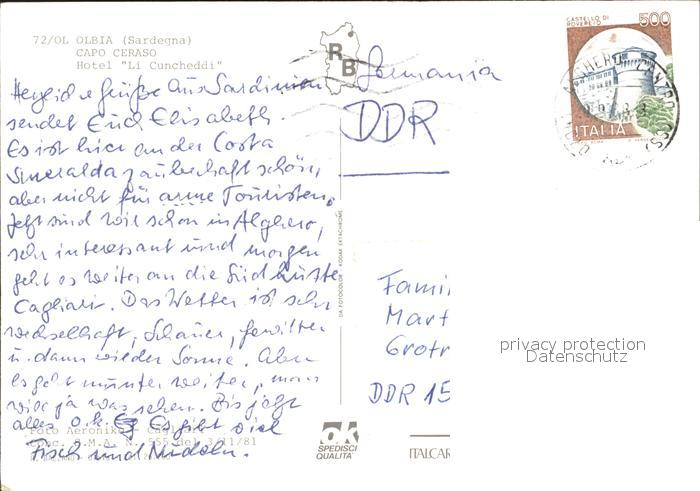 72/OL OLBIA (Sardegna)
CAPO CERASO
Hotel "Li Cuncheddi"
Herzliche Grüße aus Sardinien
sendet Euch Elisabeth.
Es ist hier an der Costa
Smeralda zauberhaft schön,
aber nicht für arme Touristen.
Jetzt sind wir schon in Alghero,
sehr interessant und morgen
geht es weiter an die Südküste
Cagliari. Das Wetter ist sehr
wechselhaft, Schauer, Gewitter
u. dann wieder Sonne. Aber
es geht munter weiter, man
will ja was sehen. Bis jetzt
alles o.k. Es gibt viel
Fisch und Nudeln.
Foto Aeronika - Cagliari
Conc. S.M.A. N. 555 del 3/11/81
DA FOTOCOLOR KODAK EKTACHROME
RB
Germania
DDR
CASTELLO DI
ROVERETO
500
ITALIA
ALGHERO
Fami
Mart
Grotr
DDR 15
privacy protection
Datenschutz
ok
SPEDISCI
QUALITÀ
ITALCAR